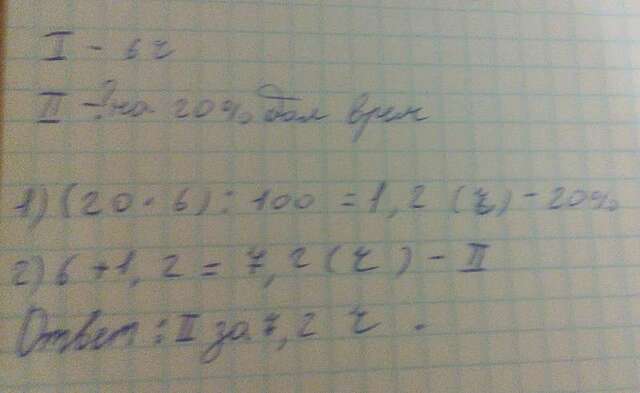 I - 6 ч
II - ? на 20% бол врем
1) (20 · 6) : 100 = 1,2 (ч) - 20%
2) 6 + 1,2 = 7,2 (ч) - II
Ответ : II за 7,2 ч .